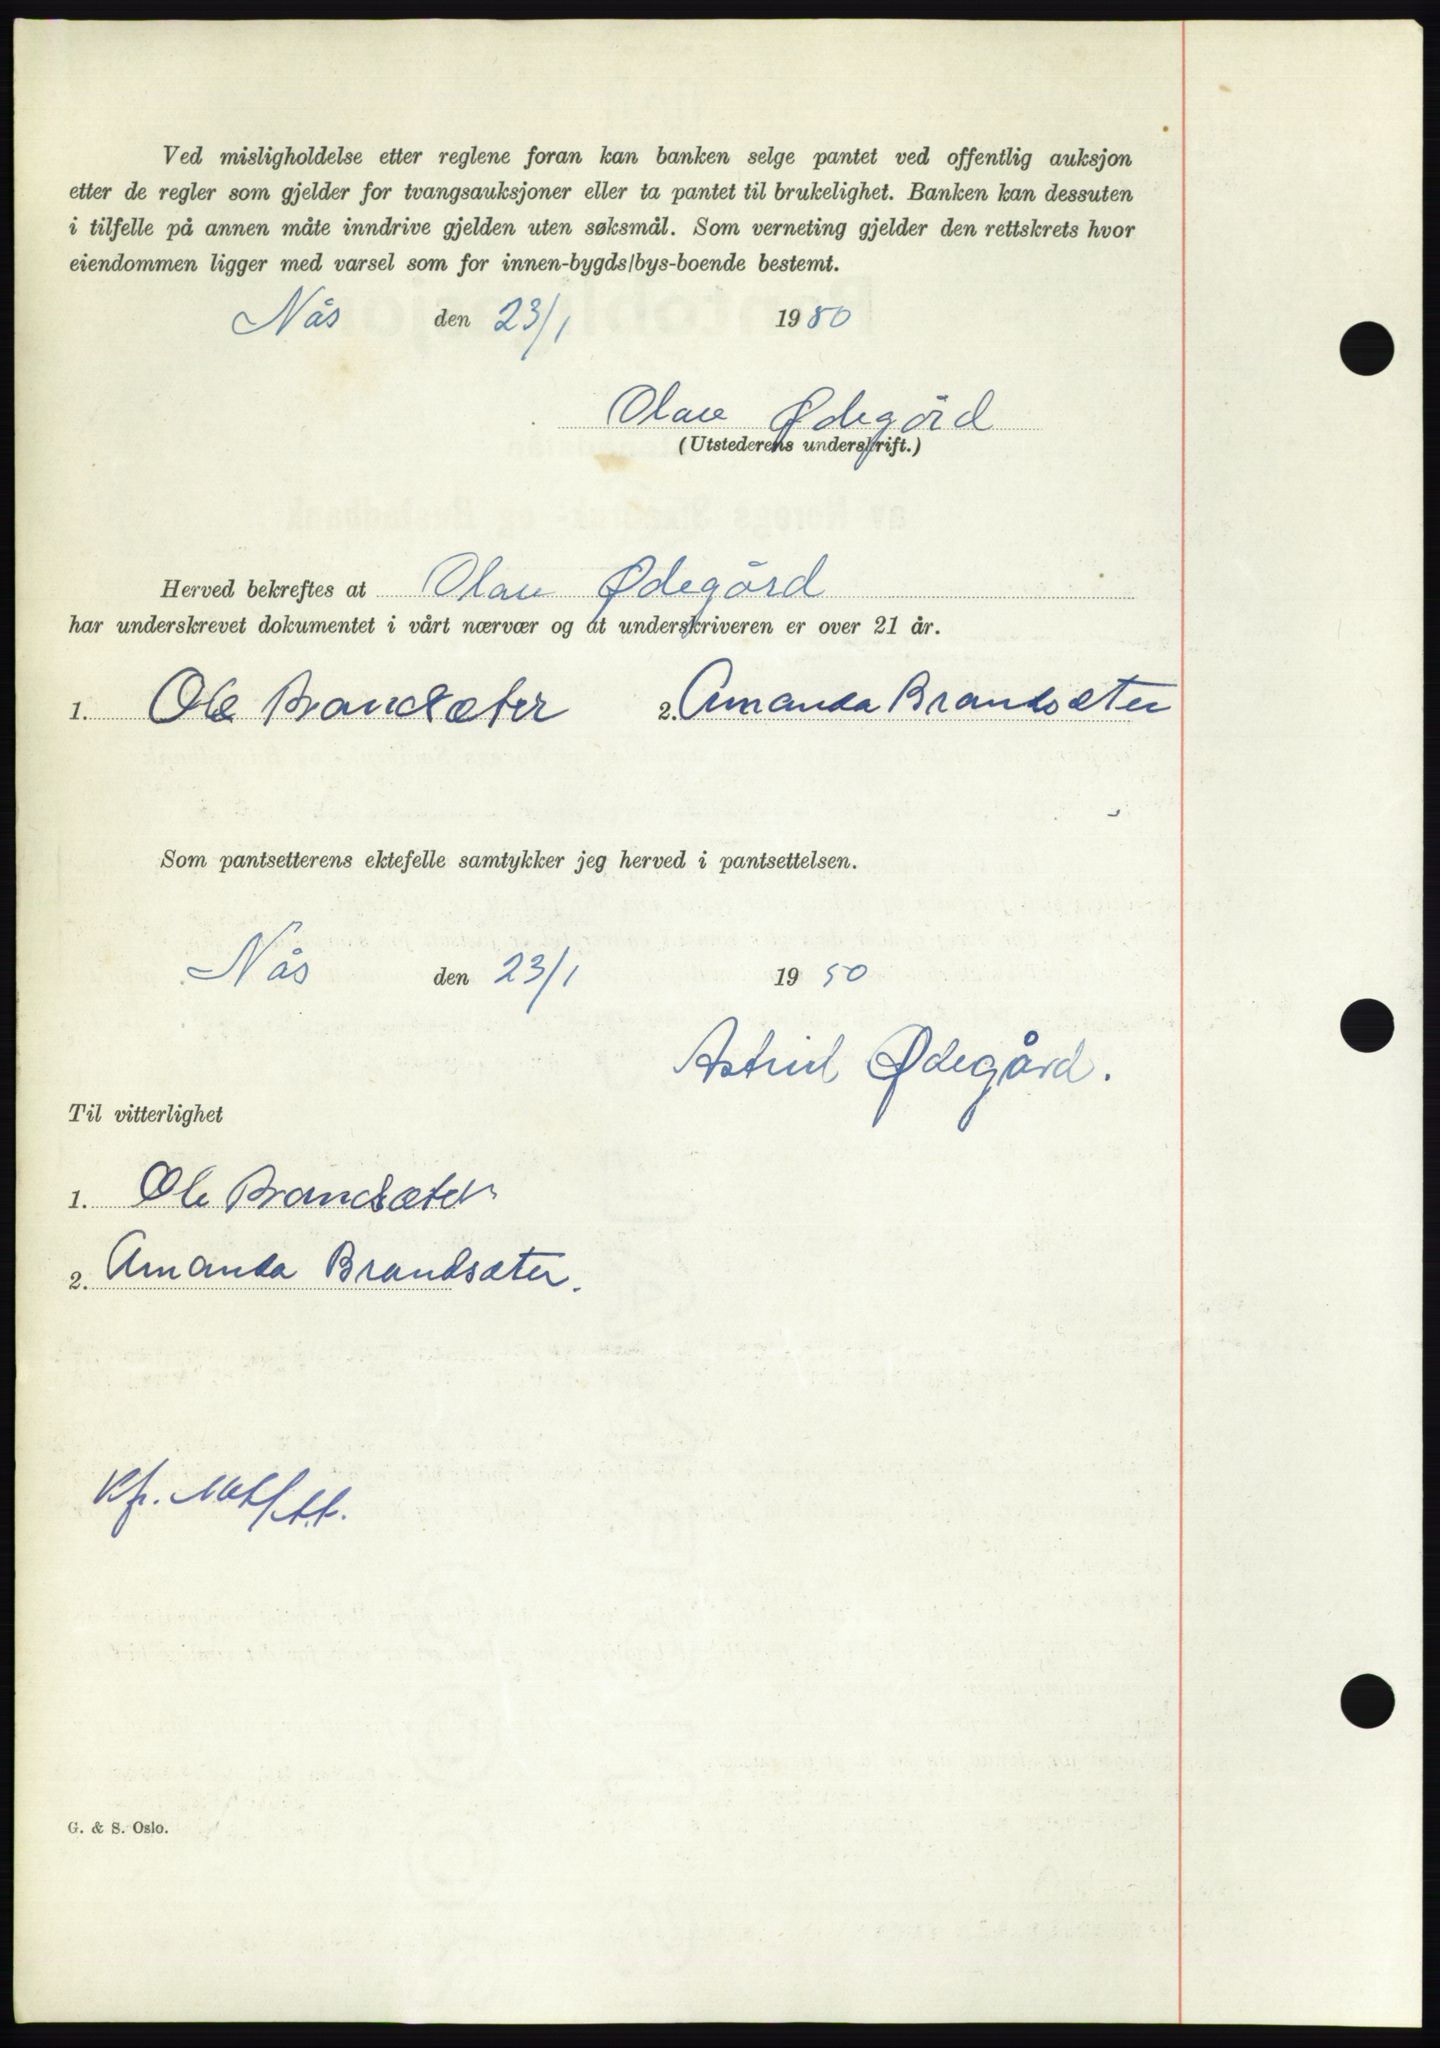 Ved misligholdelse etter reglene foran kan banken selge pantet ved offentlig auksjon
etter de regler som gjelder for tvangsauksjoner eller ta pantet til brukelighet. Banken kan dessuten
i tilfelle på annen måte inndrive gjelden uten søksmål. Som verneting gjelder den rettskrets hvor
eiendommen ligger med varsel som for innen-bygds/bys-boende bestemt.
Nås den 23/1 1950
Olav Ødegård
(Utstederens underskrift.)
Herved bekreftes at Olav Ødegård
har underskrevet dokumentet i vårt nærvær og at underskriveren er over 21 år.
1. Ole Brandsæter 2. Amanda Brandsæter
Som pantsetterens ektefelle samtykker jeg herved i pantsettelsen.
Nås den 23/1 1950
Astrid Ødegård.
Til vitterlighet
1. Ole Brandsæter
2. Amanda Brandsæter.
G. & S. Oslo.